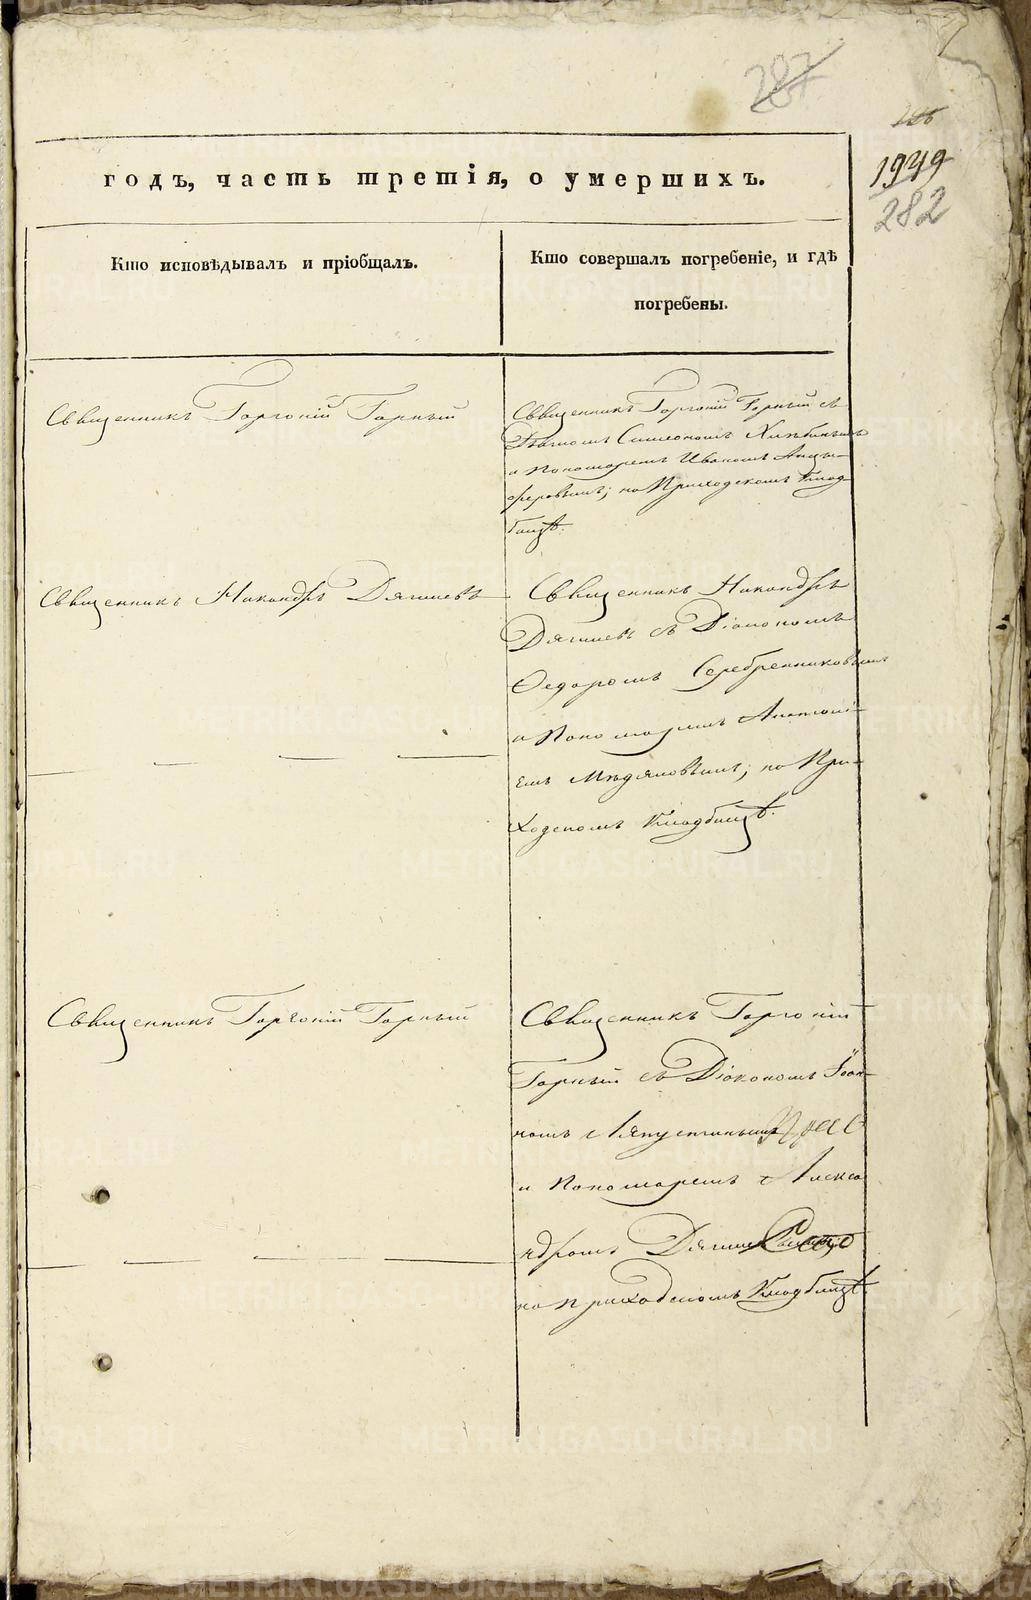 287
1949
282
годъ, часть третія, о умершихъ.
Кто исповѣдывалъ и пріобщалъ.
Кто совершалъ погребеніе, и гдѣ
погребены.
Священникъ Горгоній Горный
Священникъ Горгоній Горный съ
Симеономъ
и Пономаремъ Иваномъ Анцы-
феровымъ; на Приходскомъ Клад-
бищѣ.
Священникъ Никандръ Дягилевъ
Священникъ Никандръ
Дягилевъ съ Діакономъ
Ѳедоромъ Серебренниковымъ
и Пономаремъ Анатолі-
емъ Мѣдяковымъ; на При-
ходскомъ Кладбищѣ.
Священникъ Горгоній Горный
Священникъ Горгоній
Горный съ Діакономъ Іоан-
номъ Ляпустинымъ
и Пономаремъ Алекса
ндромъ
на приходскомъ Кладбищѣ.
METRIKI.GASO-URAL.RU